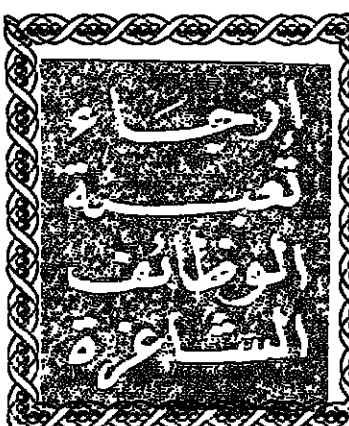 إرجاء
تعبئة
الوظائف
الشاغرة